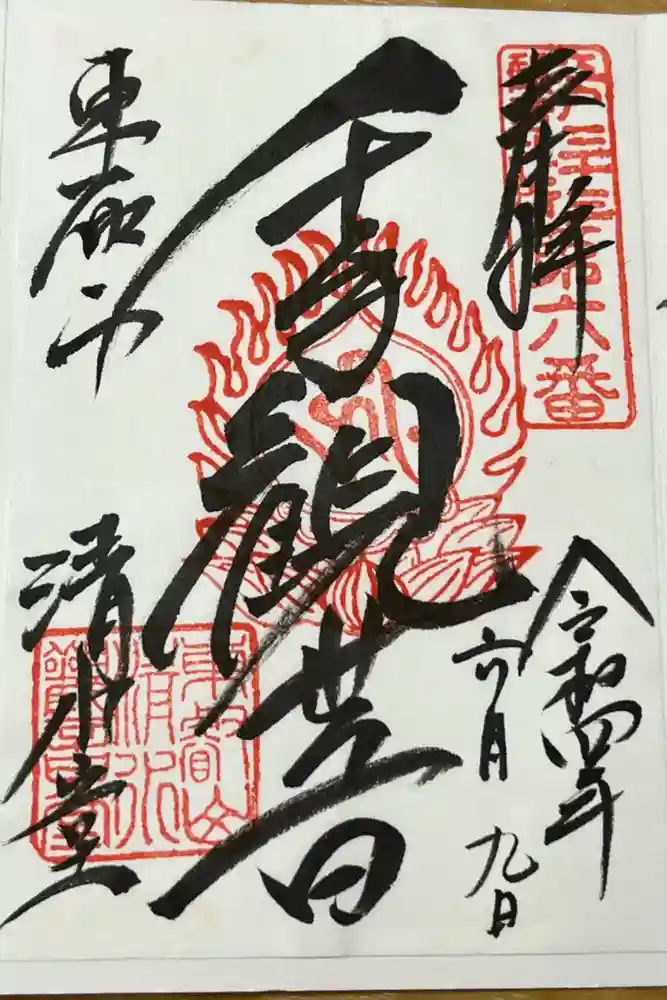 奉拝
第六番
令和四年
六月九日
千手觀世音
東叡山
清水堂